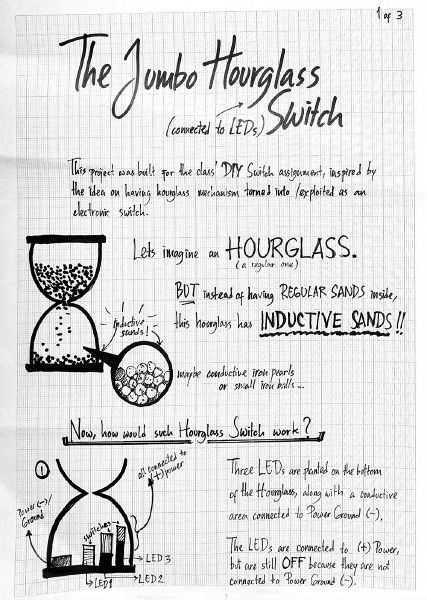 1 of 3
The Jumbo Hourglass
(connected to LEDs) Switch
This project was built for the class' DIY Switch assignment, inspired by
the idea on having hourglass mechanism turned into/exploited as an
electronic switch.
Lets imagine an HOURGLASS.
(a regular one)
BUT instead of having REGULAR SANDS inside,
this hourglass has INDUCTIVE SANDS!!
inductive
sands!
maybe conductive iron pearls
or small iron balls...
Now, how would such Hourglass Switch work?
1
Power (-)/
Ground
switches
all connected to
(+) power
LED 3
LED 2
LED 1
Three LEDs are planted on the bottom
of the Hourglass, along with a conductive
area connected to Power Ground (-).
The LEDs are connected to (+) Power,
but are still OFF because they are not
connected to Power Ground (-).